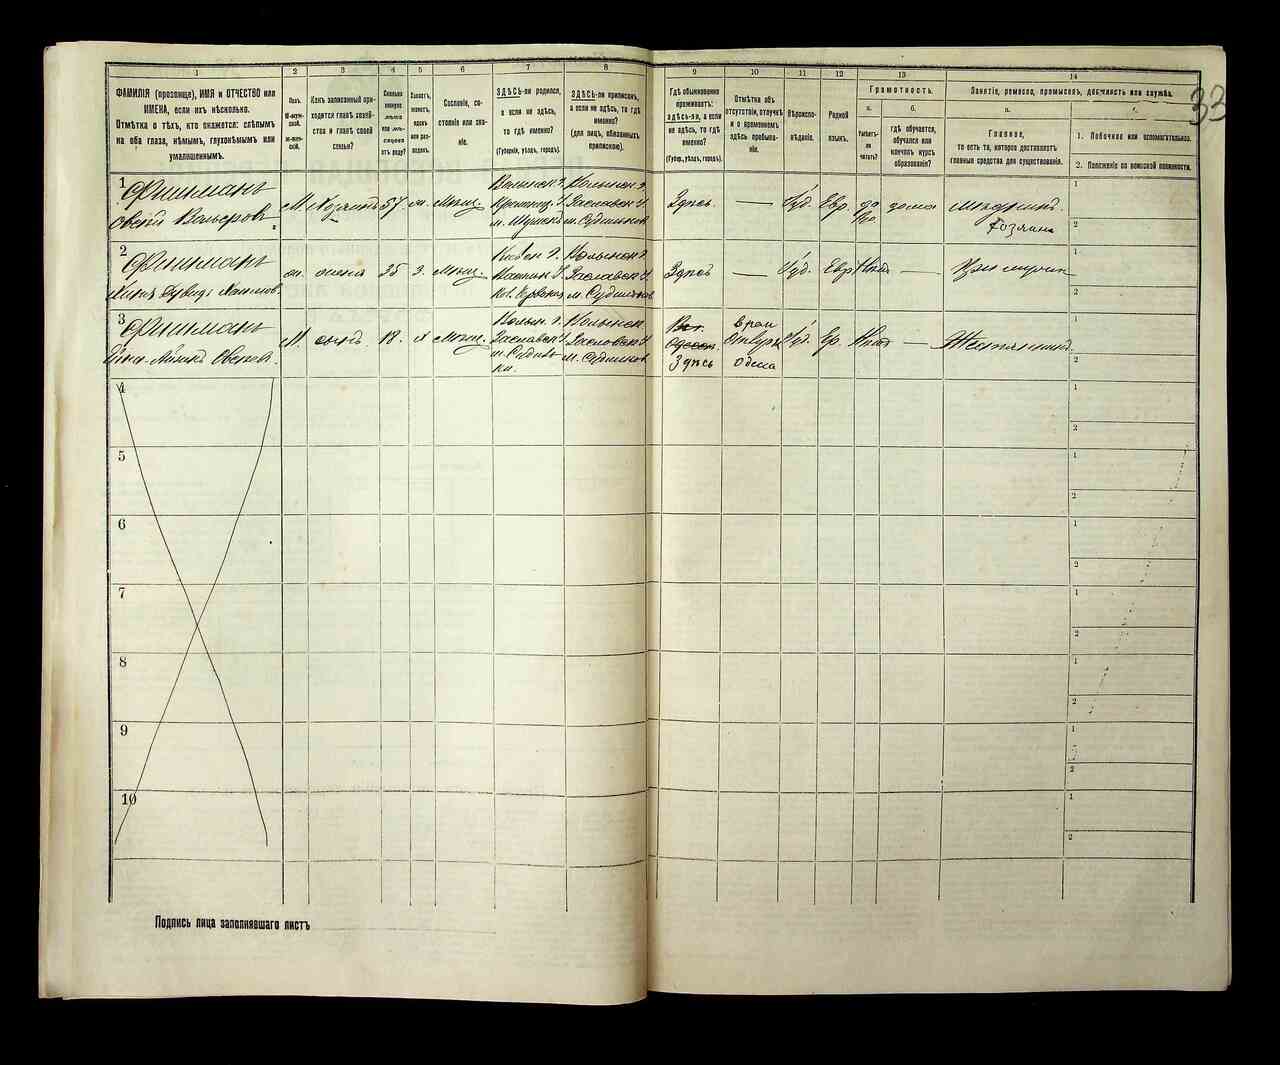 33
1 2 3 4 5 6 7 8 9 10 11 12 13 14
ФАМИЛІЯ (прозвище), ИМЯ и ОТЧЕСТВО или
ИМЕНА, если ихъ нѣсколько.
Отмѣтка о тѣхъ, кто окажется: слѣпымъ
на оба глаза, нѣмымъ, глухонѣмымъ или
умалишеннымъ.
Полъ.
М-муж-
ской.
Ж-жен-
ской.
Какъ записанный при-
ходится главѣ хозяй-
ства и главѣ своей
семьи?
Сколько
минуло
лѣтъ
или мѣ-
сяцевъ
отъ роду?
Холостъ,
женатъ,
вдовъ
или раз-
веденъ.
Сословіе, со-
стояніе или зва-
ніе.
ЗДѢСЬ-ли родился,
а если не здѣсь,
то гдѣ именно?
(Губернія, уѣздъ, городъ).
ЗДѢСЬ-ли приписанъ,
а если не здѣсь, то гдѣ
именно?
(для лицъ, обязанныхъ
припискою).
Гдѣ обыкновенно
проживаетъ:
здѣсь-ли, а если
не здѣсь, то гдѣ
именно?
(Губер., уѣздъ, городъ).
Отмѣтка объ
отсутствіи, отлучкѣ
и о временномъ
здѣсь пребыва-
ніи.
Вѣроиспо-
вѣданіе.
Родной
языкъ.
Грамотность.
а.
Умѣетъ-
ли
читать?
б.
гдѣ обучается,
обучался или
кончилъ курсъ
образованія?
Занятіе, ремесло, промыселъ, должность или служба.
а.
Главное,
то есть то, которое доставляетъ
главныя средства для существованія.
1. Побочное или вспомогательное.
2. Положеніе по воинской повинности.
1
Фишманъ
М. Хозяинъ 57. ж. Мѣщ.
Волынск. г.
м. Шумскъ
Волынск. г.
Заславск. у.
м. Судилковъ
Здѣсь — Іуд. Евр. да дома
Хозяинъ
1
2
2
Фишманъ
ж. жена 35 з. Мѣщ.
Волынск. г.
Заславск. у.
м. Судилковъ
Здѣсь — Іуд. Евр. Нѣтъ —
При мужѣ
1
2
3
Фишманъ
М. сынъ 18. х Мѣщ.
Волын. г.
Заславск. у.
Волынск.
Заславск. у.
м. Судилков
Одесса
Здѣсь
Іуд. Ев. Нѣтъ —
Жестянникъ
1
2
4
1
2
5
1
2
6
1
2
7
1
2
8
1
2
9
1
2
10
1
2
Подпись лица заполнявшаго листъ